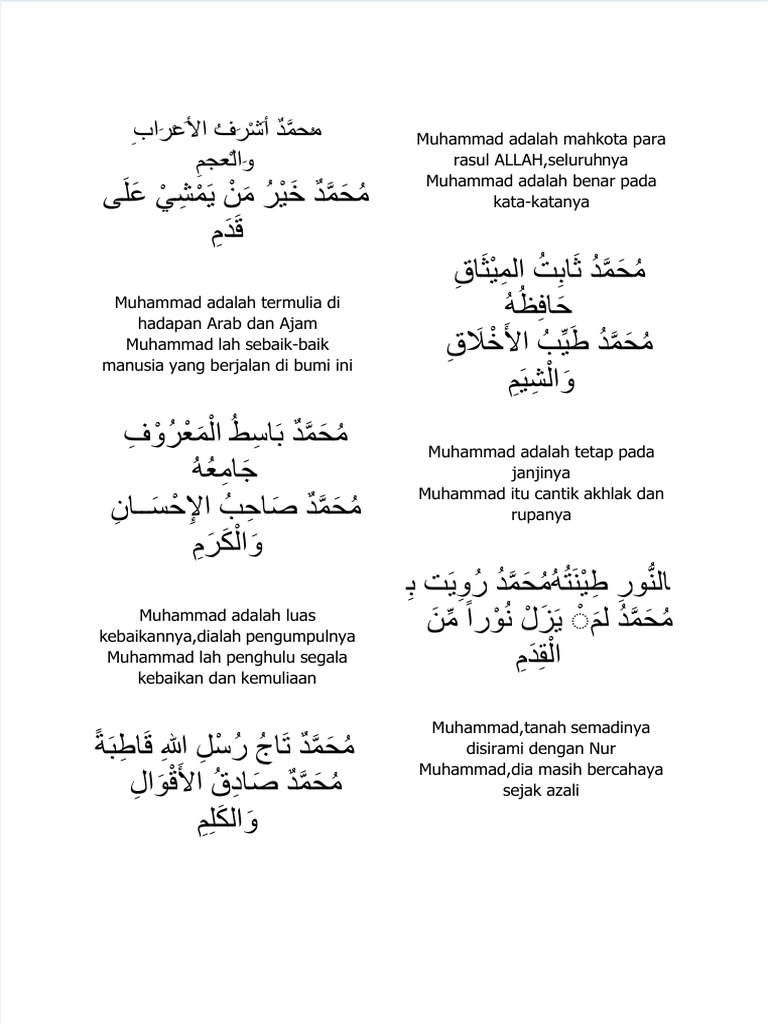 محمَّدٌ أَشْرَفُ الأَعْرَابِ
وَالْعَجَمِ
مُحَمَّدٌ خَيْرُ مَنْ يَمْشِيْ عَلَى
قَدَمِ
Muhammad adalah termulia di
hadapan Arab dan Ajam
Muhammad lah sebaik-baik
manusia yang berjalan di bumi ini
مُحَمَّدٌ بَاسِطُ الْمَعْرُوْفِ
جَامِعُهُ
مُحَمَّدٌ صَاحِبُ الإِحْسَـــانِ
وَالْكَرَمِ
Muhammad adalah luas
kebaikannya,dialah pengumpulnya
Muhammad lah penghulu segala
kebaikan dan kemuliaan
مُحَمَّدٌ تَاجُ رُسْلِ اللهِ قَاطِبَةً
مُحَمَّدٌ صَادِقُ الأَقْوَالِ
وَالكَلِمِ
Muhammad adalah mahkota para
rasul ALLAH,seluruhnya
Muhammad adalah benar pada
kata-katanya
مُحَمَّدُ ثَابِتُ المِيْثَاقِ
حَافِظُهُ
مُحَمَّدُ طَيِّبُ الأَخْلَاقِ
وَالْشِيَمِ
Muhammad adalah tetap pada
janjinya
Muhammad itu cantik akhlak dan
rupanya
بِالنُّورِ طِيْنَتُهُمُحَمَّدُ رُوِيَت
مُحَمَّدُ لمَ ْ يَزَلْ نُوْراً مِّنَ
الْقِدَمِ
Muhammad,tanah semadinya
disirami dengan Nur
Muhammad,dia masih bercahaya
sejak azali